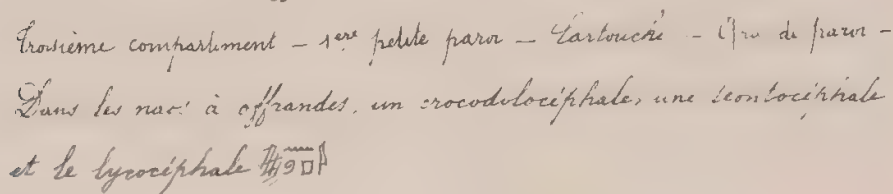 Troisième compartiment – 1ère petite paroi – Cartouche – de paroi –
Dans les naos à offrandes, un crocodilocéphale, une léontocéphale
et le lycocéphale